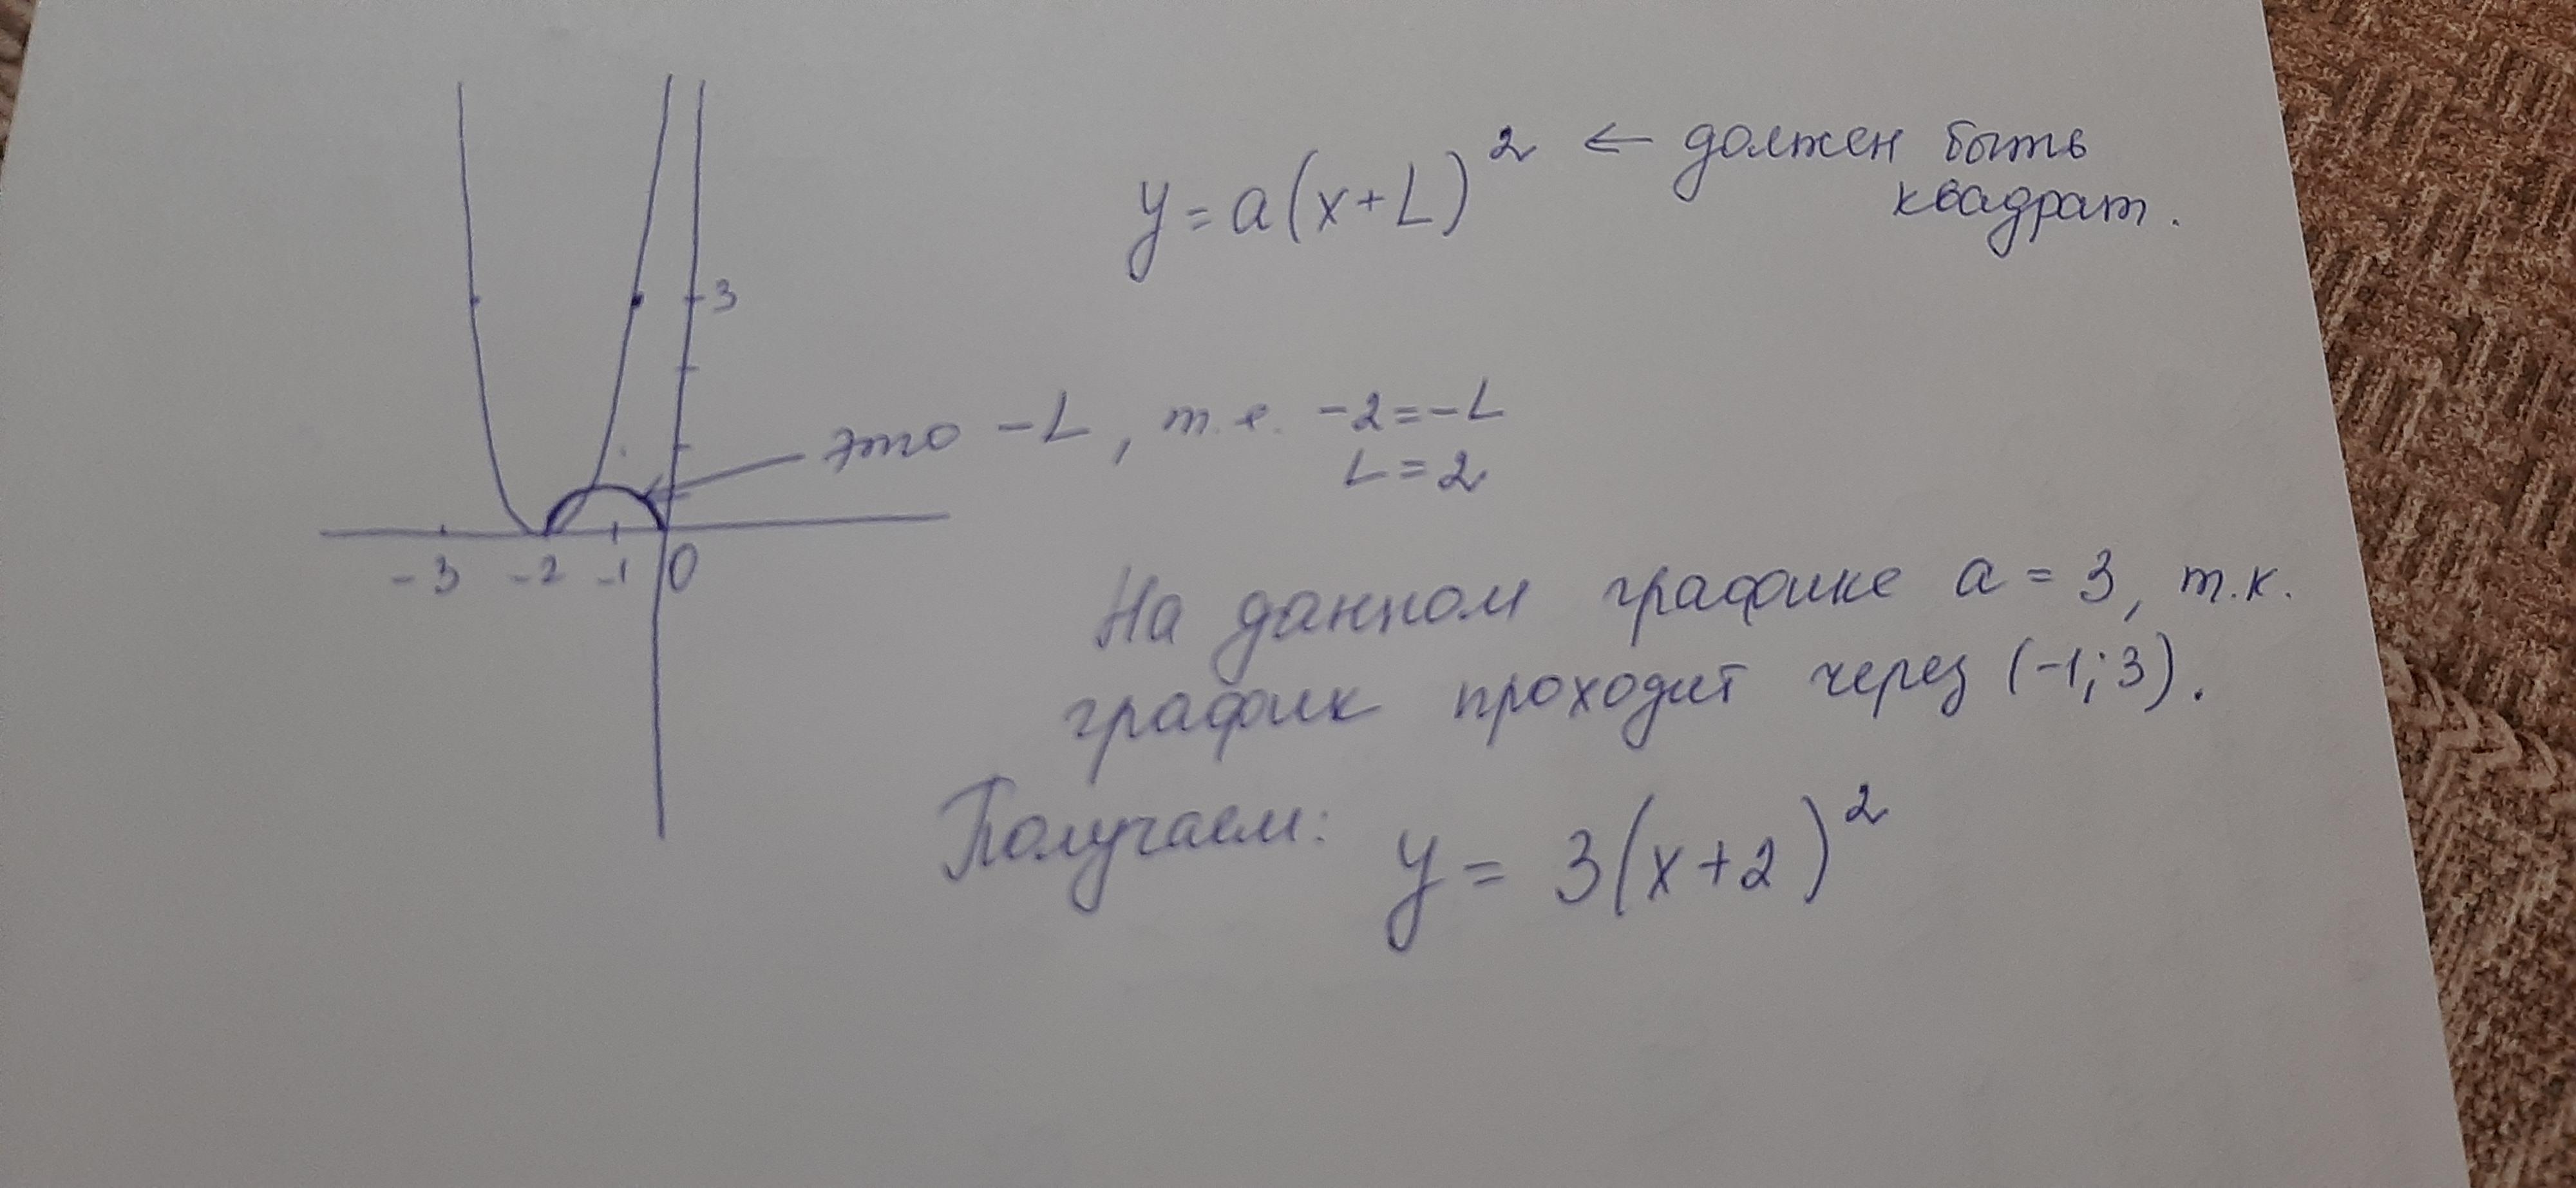 y = a(x+L)² ← должен быть
квадрат.
3
это -L, т.е. -2=-L
L=2
-3 -2 -1 0
На данном графике a = 3, т.к.
график проходит через (-1;3).
Получаем: y = 3(x+2)²